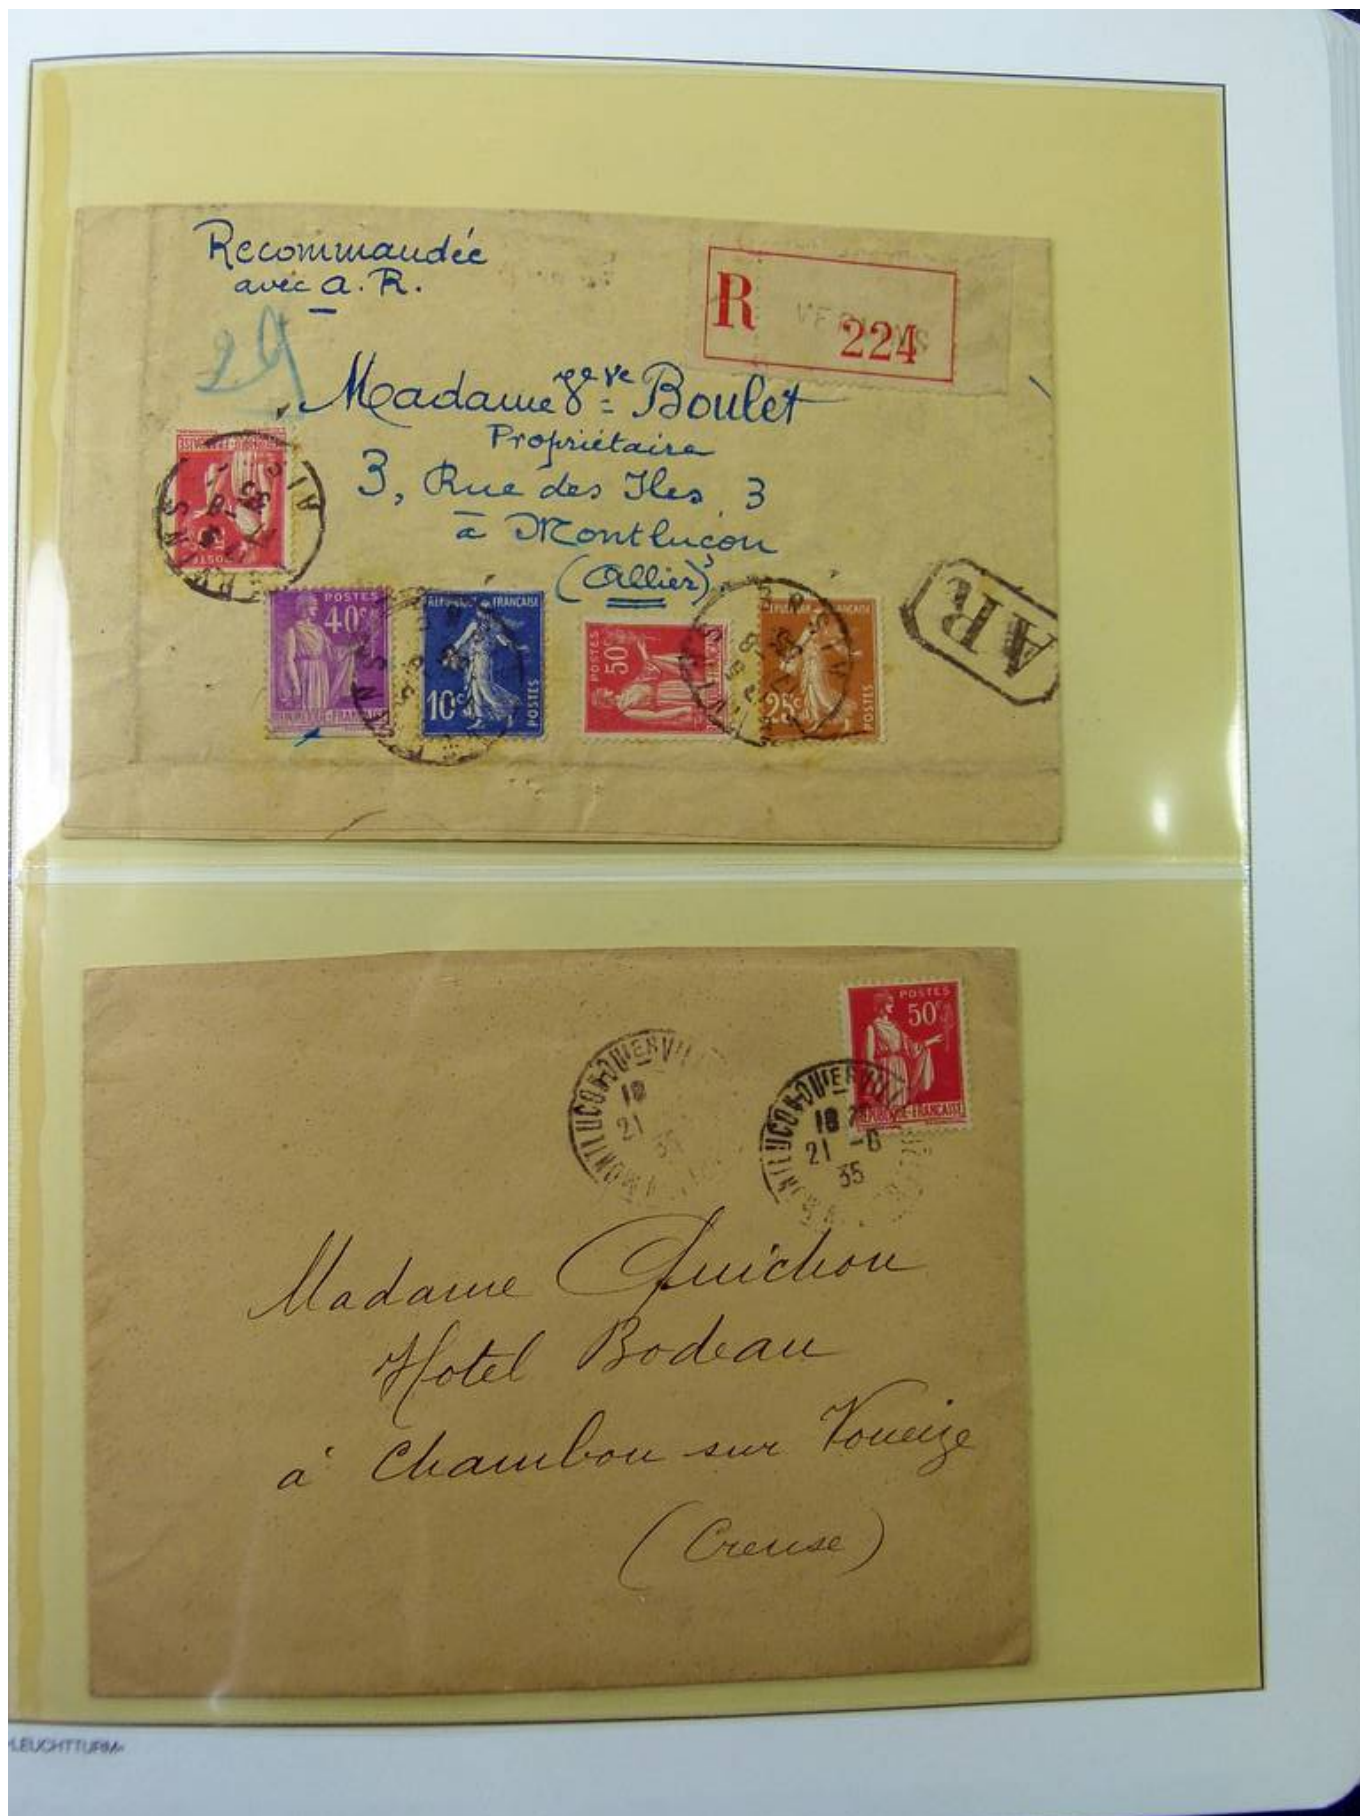 Recommandée
avec a. R.
29
R
224
Madame Vve Boulet
Propriétaire
3, Rue des Iles, 3
à Montluçon
(Allier)
AR
POSTES
40c
REPUBLIQUE FRANÇAISE
10c
POSTES
POSTES
50c
REPUBLIQUE FRANÇAISE
25c
POSTES
POSTES
50c
REPUBLIQUE-FRANÇAISE
MONTLUCON-
18
21
35
18
21 -6
35
Madame Quichon
Hotel Bodeau
à Chambon sur Voueize
(Creuse)
LEUCHTTURM